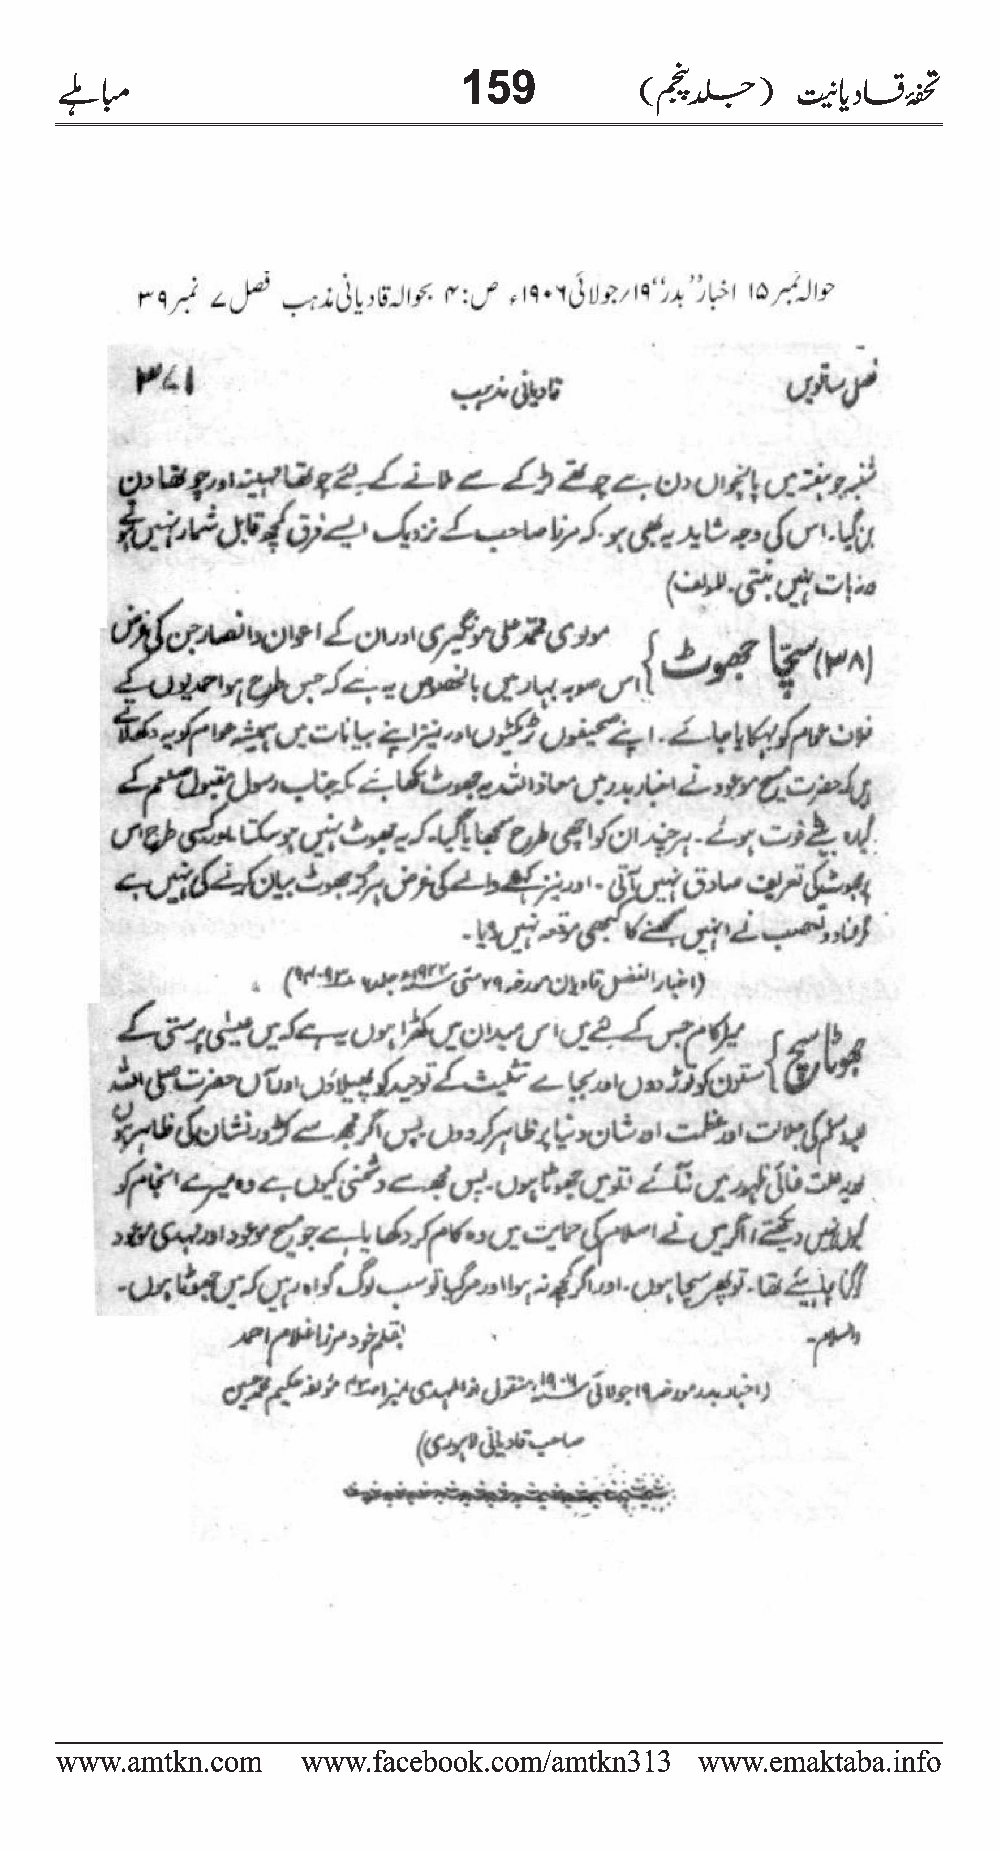 تحفۂ قادیانیت (جلد پنجم) 159 مباہلے
حوالہ نمبر ۱۵ اخبار "بدر" ۱۹/جولائی ۱۹۰۶ء ص:۴ بحوالہ قادیانی مذہب فصل ۷ نمبر ۳۹
فصل ساتویں قادیانی مذہب ۳۷۱
جو ہفتہ میں پانچواں دن ہے چوتھے لڑکے سے ملانے کے لئے چوتھا مہینہ اور چوتھا دن
بن گیا۔ اس کی وجہ شاید یہ بھی ہو کہ مرزا صاحب کے نزدیک ایسے فرق کچھ قابل شمار نہیں تھے
ورنہ بات نہیں بنتی۔ للمؤلف)
(۳۸) سچا جھوٹ } مولوی محمد علی مونگیری اور ان کے اعوان و انصار جن کی غرض
اس صوبہ بہار میں بالخصوص یہ ہے کہ جس طرح ہو احمدیوں کے
خلاف عوام کو بہکایا جائے۔ اپنے صحیفوں ٹریکٹوں اور نیز اپنے بیانات میں ہمیشہ عوام کو یہ دکھلاتے
ہیں کہ حضرت مسیح موعود نے اخبار بدر میں معاذ اللہ یہ جھوٹ لکھا ہے کہ جناب رسول مقبول صلعم کے
گیارہ بیٹے فوت ہوئے۔ ہر چند ان کو اچھی طرح سمجھایا گیا۔ کہ یہ جھوٹ نہیں ہو سکتا۔ اور کسی طرح اس
پر جھوٹ کی تعریف صادق نہیں آتی۔ اور نیز کہنے والے کی غرض ہرگز جھوٹ بیان کرنے کی نہیں ہے
مگر عناد و تعصب نے انہیں سمجھنے کا کبھی موقعہ نہیں دیا۔
(اخبار الفضل قادیان مورخہ ۲۹ مئی ۱۹۲۲ء جلد ۹
جھوٹا سچ } میرا کام جس کے لئے میں اس میدان میں کھڑا ہوں یہ ہے کہ میں عیسٰی پرستی کے
ستون کو توڑ دوں اور بجائے تثلیث کے توحید کو پھیلاؤں اور آں حضرت صلی اللہ
علیہ وسلم کی جلالت اور عظمت اور شان دنیا پر ظاہر کر دوں۔ پس اگر مجھ سے کروڑ نشان بھی ظاہر ہوں
اور یہ علت غائی ظہور میں نہ آئے تو میں جھوٹا ہوں۔ پس مجھ سے دشمنی کیوں ہے وہ میرے انجام کو
کیوں نہیں دیکھتے اگر میں نے اسلام کی حمایت میں وہ کام کر دکھایا ہے جو مسیح موعود اور مہدی موعود
کو کرنا چاہیئے تھا۔ تو پھر سچا ہوں۔ اور اگر کچھ نہ ہوا اور مر گیا تو سب لوگ گواہ رہیں کہ میں جھوٹا ہوں۔
والسلام۔ بقلم خود مرزا غلام احمد
(اخبار بدر مورخہ ۱۹ جولائی ۱۹۰۶ء منقول از المہدی نمبر مؤلفہ حکیم محمد حسین
صاحب قادیانی لاہوری)
www.amtkn.com www.facebook.com/amtkn313 www.emaktaba.info